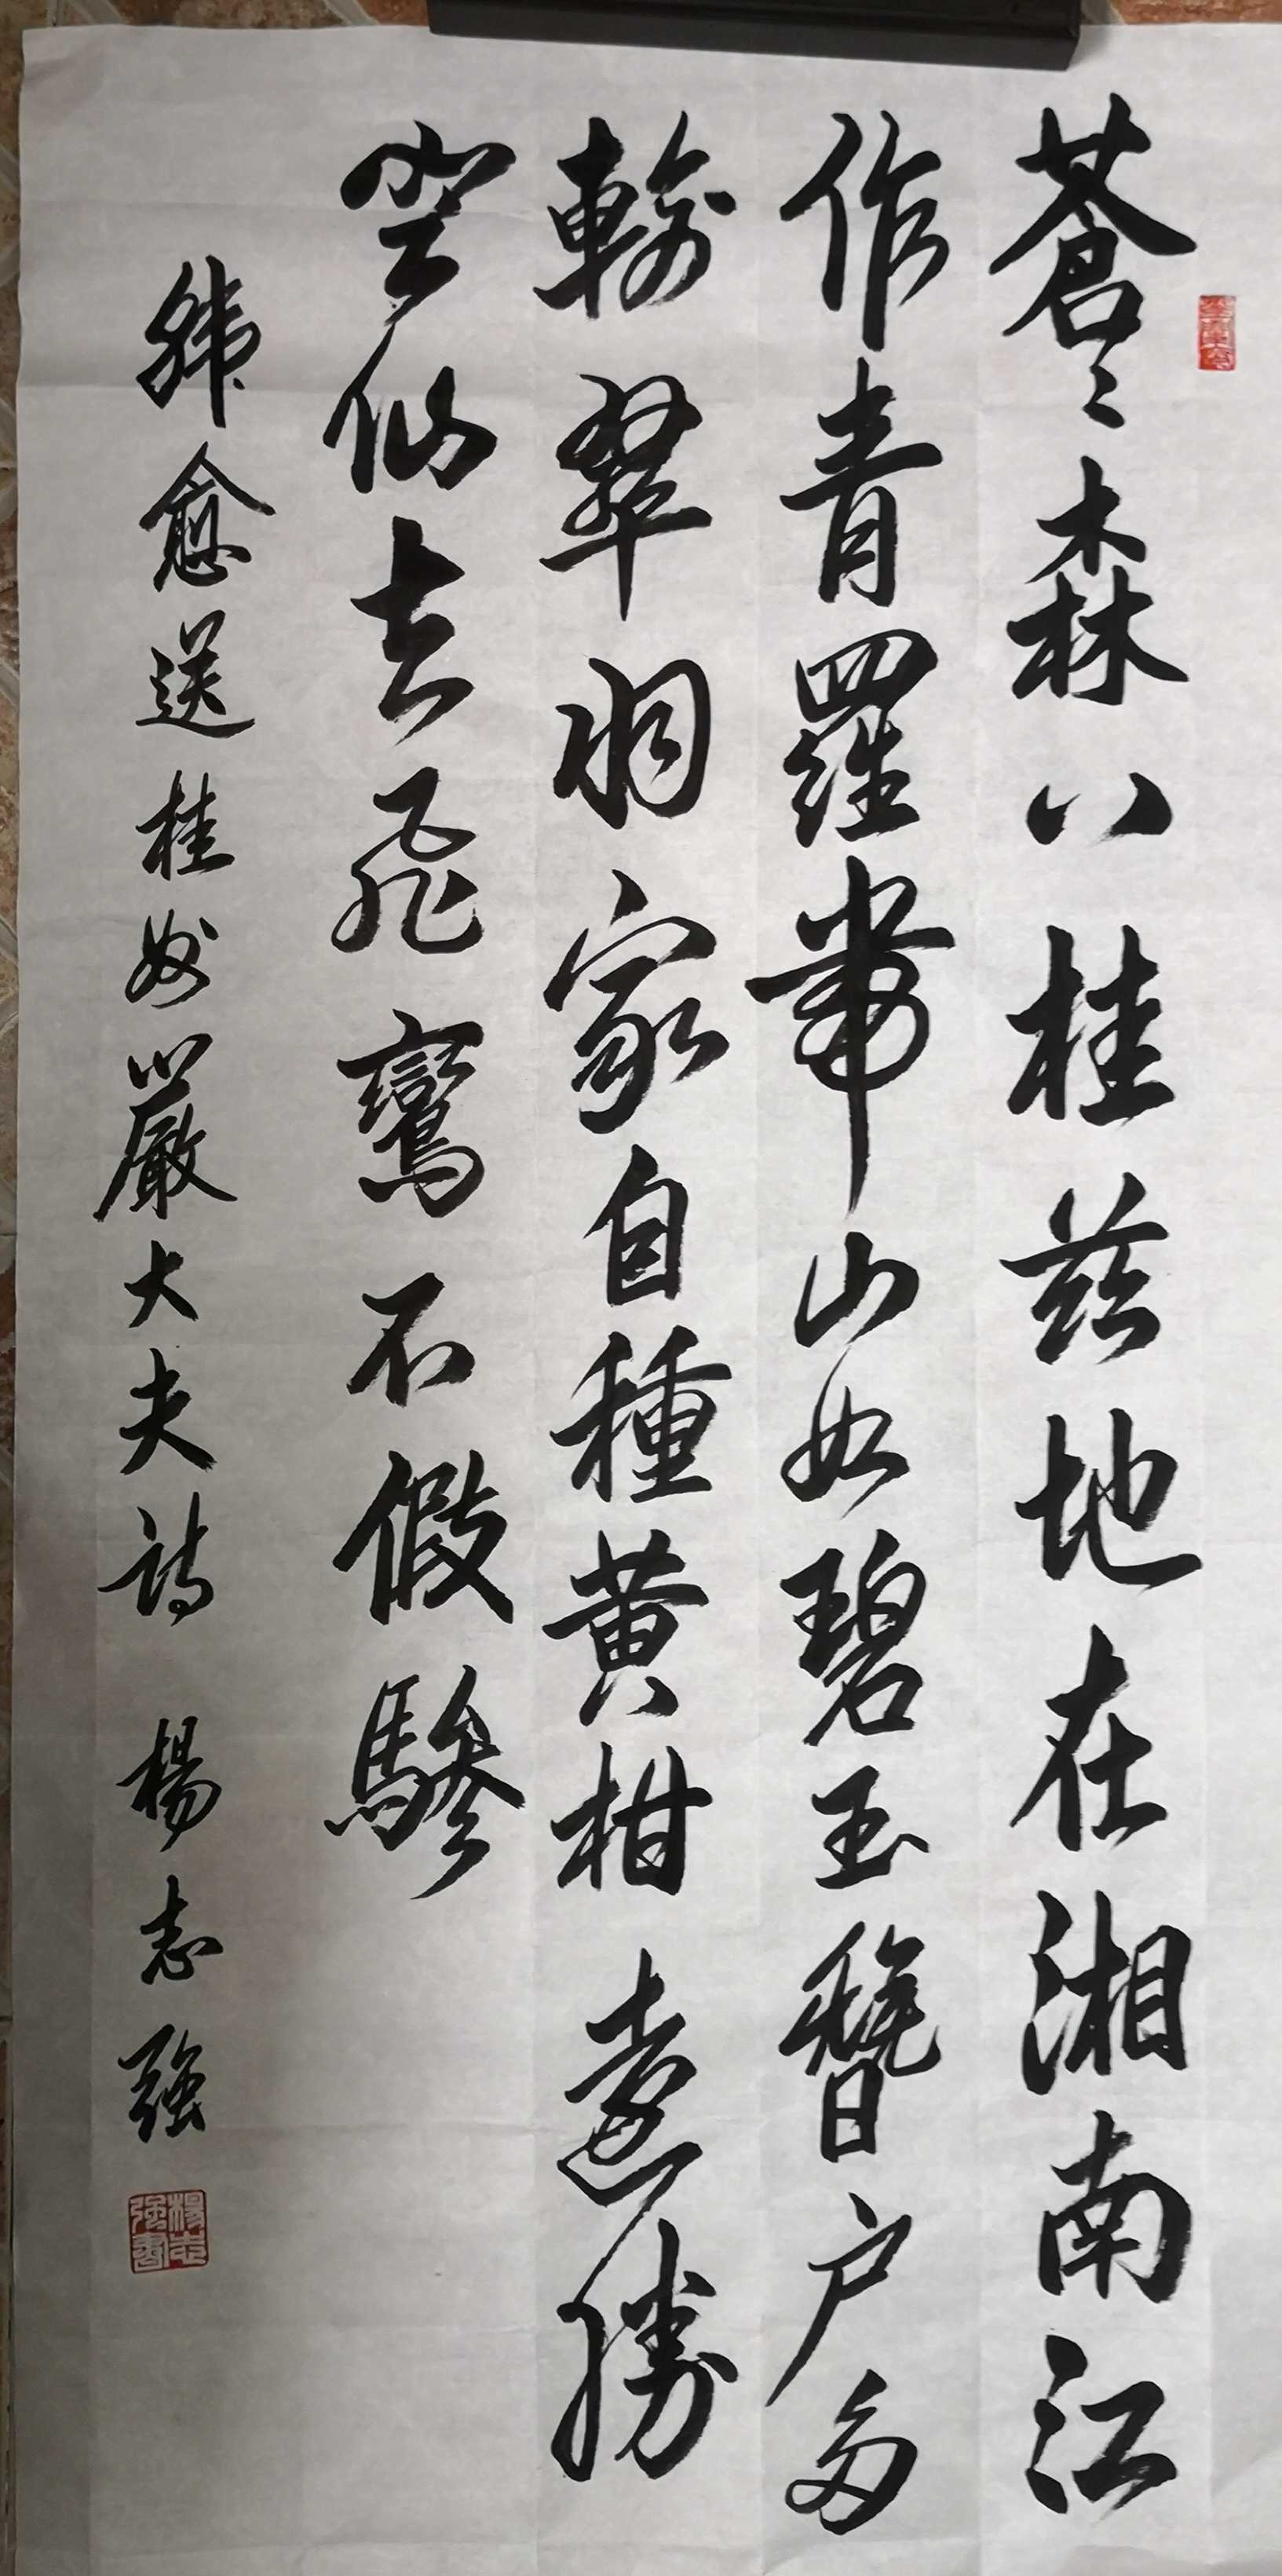 蒼々森八桂茲地在湘南江
作青羅帶山如碧玉簪户多
輸翠羽家自種黄柑遠勝
登仙去飛鸞不假驂
韩愈送桂州嚴大夫詩 楊志强
楊志强書